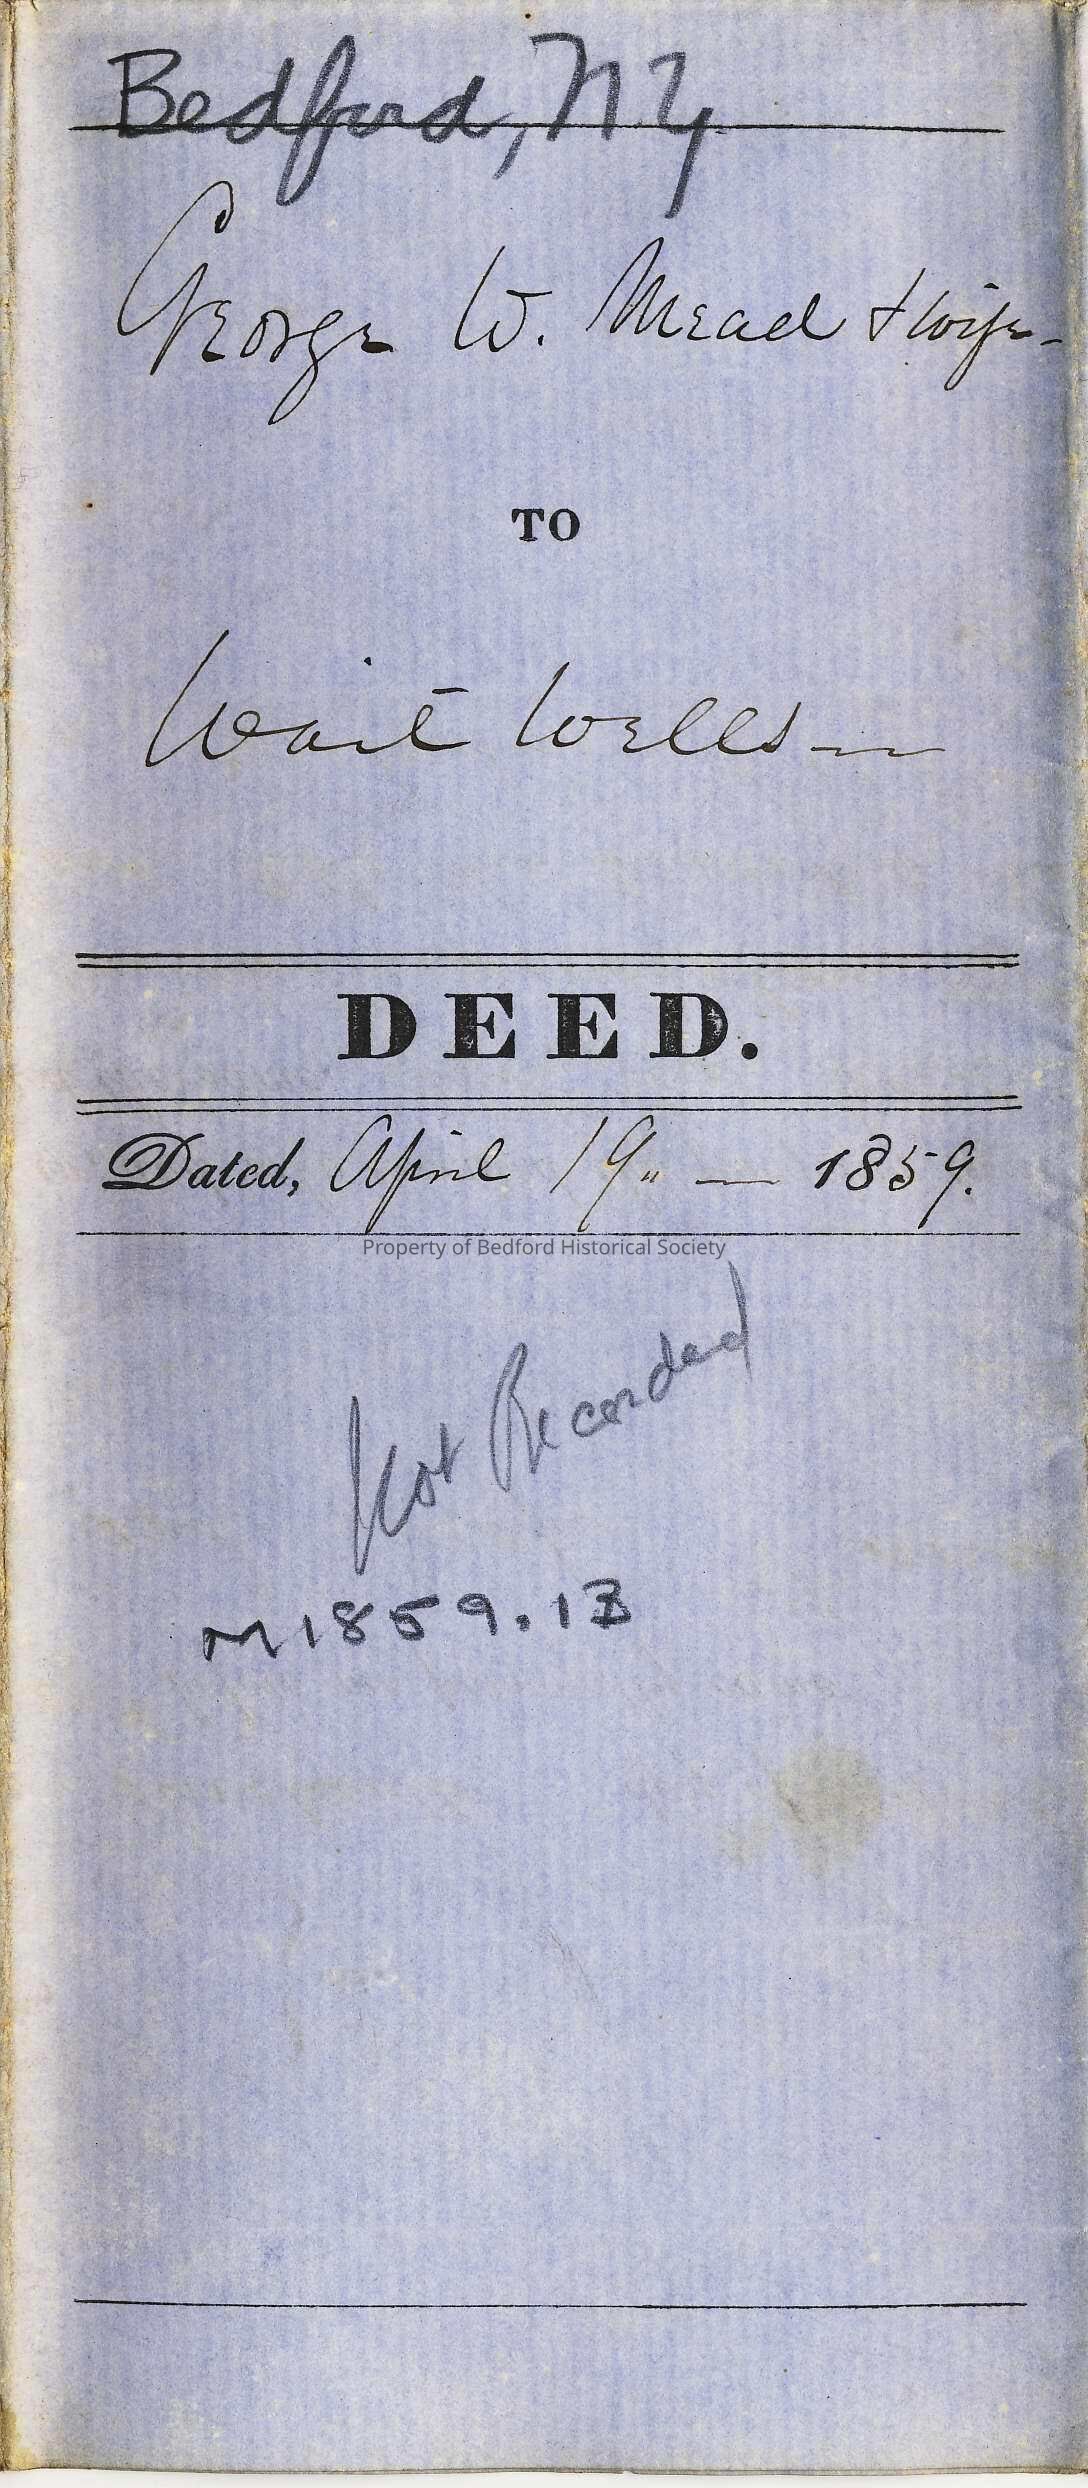 Bedford, NY
George W. Mead & wife
TO
Wait Wells
DEED.
Dated, April 19" — 1859.
Property of Bedford Historical Society
Not Recorded
M1859.1B